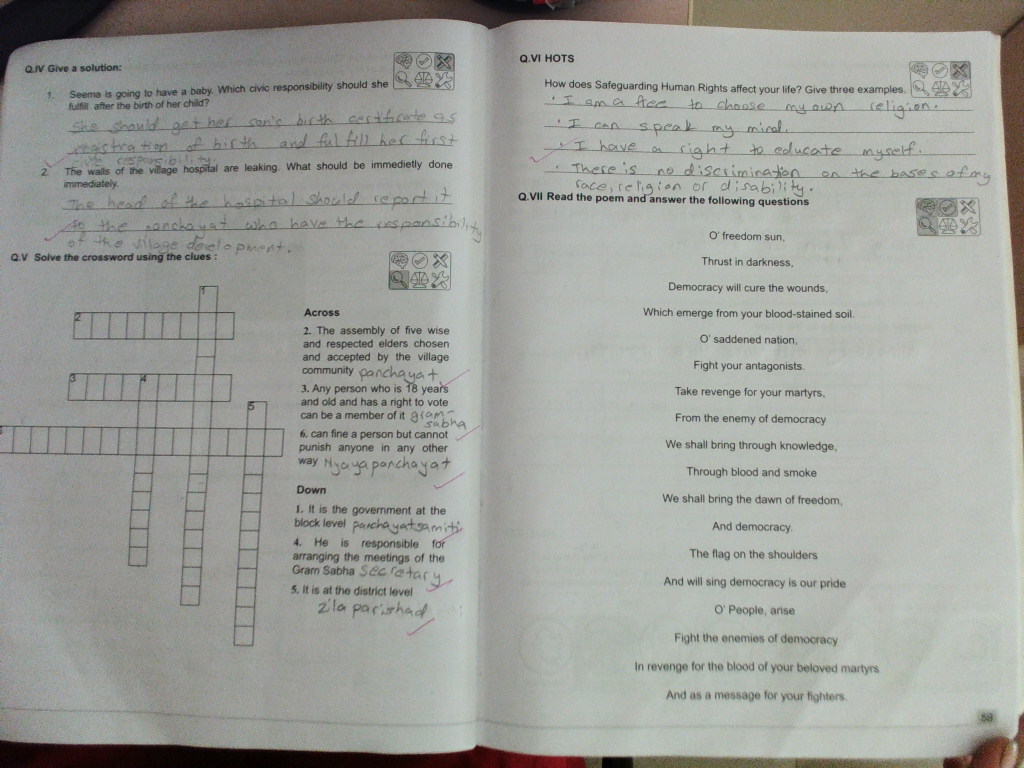 Q.IV Give a solution:
1. Seema is going to have a baby. Which civic responsibility should she
fulfill after the birth of her child?
She should get her son's birth certificate as
registration of birth and fulfill her first
civic responsibility.
2. The walls of the village hospital are leaking. What should be immedietly done
immediately.
The head of the hospital should report it
to the panchayat who have the responsibility
of the village development.
Q.V Solve the crossword using the clues :
1
2
3
4
5
Across
2. The assembly of five wise
and respected elders chosen
and accepted by the village
community panchayat
3. Any person who is 18 years
and old and has a right to vote
can be a member of it gram-
sabha
6. can fine a person but cannot
punish anyone in any other
way Nyayapanchayat
Down
1. It is the government at the
block level panchayatsamiti
4. He is responsible for
arranging the meetings of the
Gram Sabha Secretary
5. It is at the district level
zila parishad
Q.VI HOTS
How does Safeguarding Human Rights affect your life? Give three examples.
• I am a free to choose my own religion.
• I can speak my mind.
• I have a right to educate myself.
• There is no discrimination on the bases of my
race, religion or disability.
Q.VII Read the poem and answer the following questions
O' freedom sun,
Thrust in darkness,
Democracy will cure the wounds,
Which emerge from your blood-stained soil.
O' saddened nation,
Fight your antagonists.
Take revenge for your martyrs,
From the enemy of democracy
We shall bring through knowledge,
Through blood and smoke
We shall bring the dawn of freedom,
And democracy.
The flag on the shoulders
And will sing democracy is our pride
O' People, arise
Fight the enemies of democracy
In revenge for the blood of your beloved martyrs
And as a message for your fighters.
59